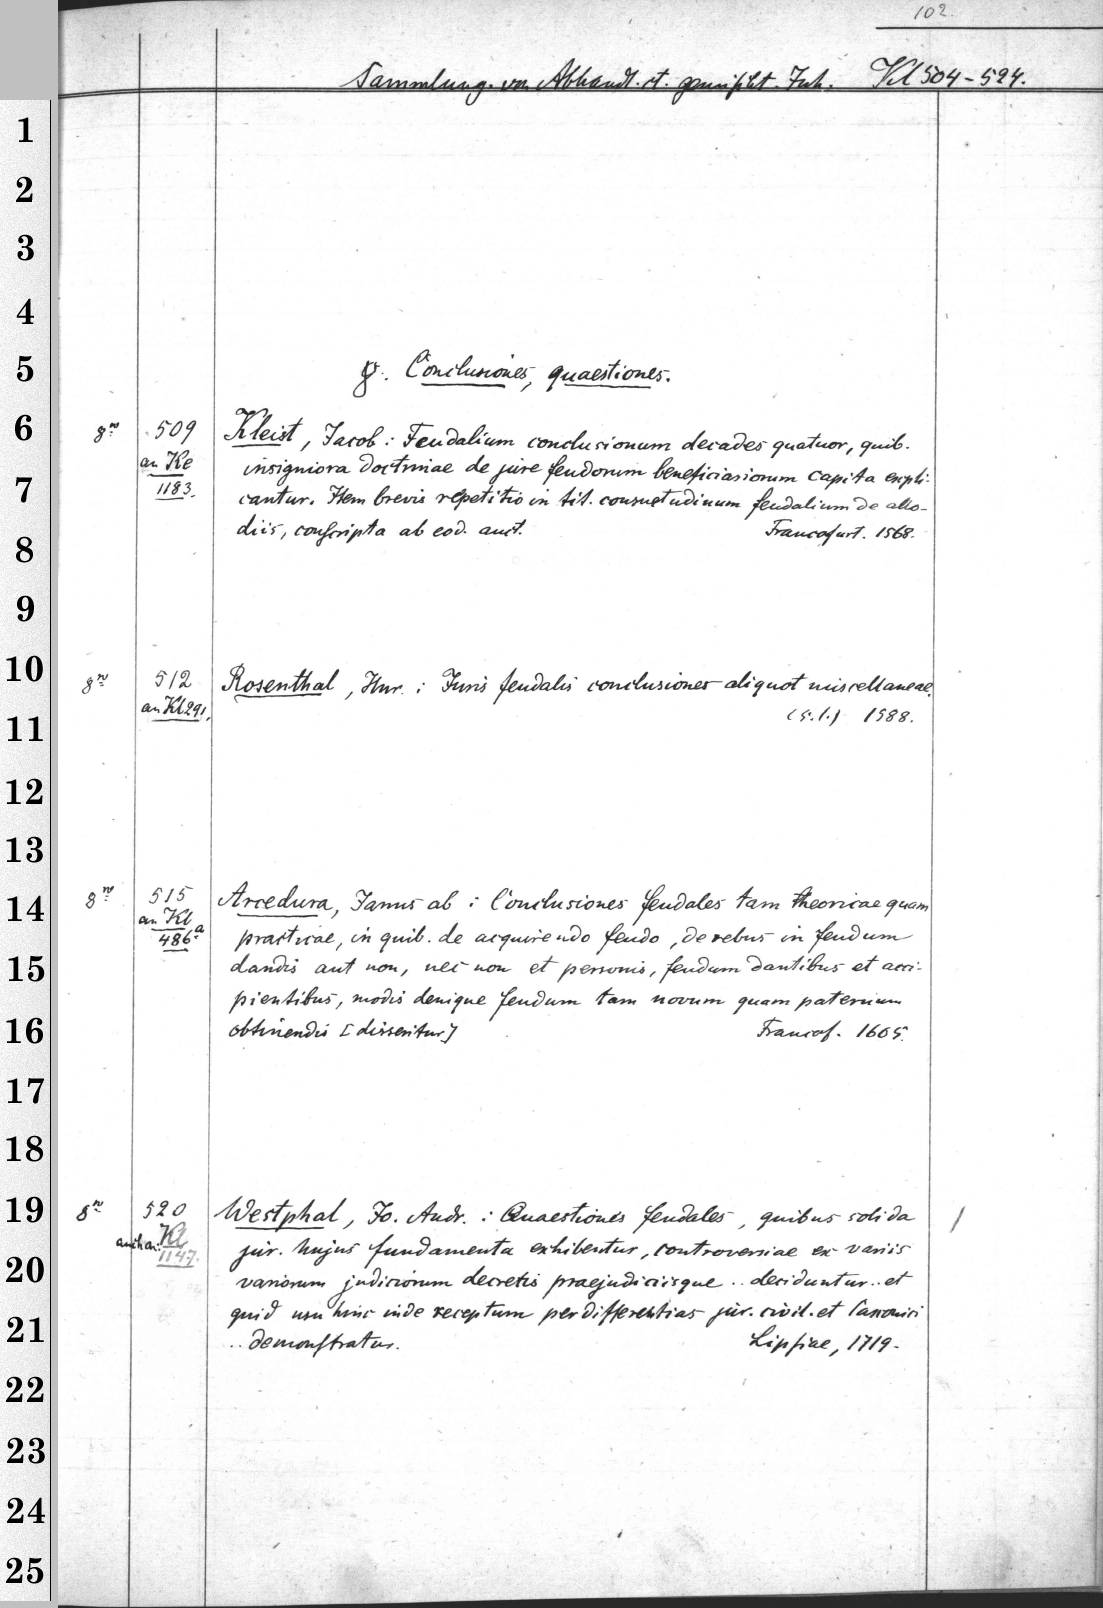 102.
Sammlung. von Abhandl. rt. gemischt. Inh. Kl 504-524.
1
2
3
4
5 γ. Conclusiones, quaestiones.
6 8° 509 Kleist, Jacob: Feudalium conclusionum decades quatuor, quib.
an Ke insigniora doctrinae de jure feudorum beneficiariorum capita expli-
7 1183. cantur. Item brevis repetitio in tit. consuetudinum feudalium de allo-
8 diis, conscripta ab eod. auct. Francofurt. 1568.
9
10 8° 512 Rosenthal, Henr.: Juris feudalis conclusiones aliquot miscellaneae.
11 an Kl 291. (s. l.) 1588.
12
13
14 8° 515 Arcedura, Janus ab: Conclusiones feudales tam theoricae quam
an Kl 486a practicae, in quib. de acquirendo feudo, de rebus in feudum
15 dandis aut non, nec non et personis, feudum dantibus et acci-
pientibus, modis denique feudum tam novum quam paternum
16 obtinendis [disseritur] Francof. 1605.
17
18
19 8° 520 Westphal, Jo. Andr.: Quaestiones feudales, quibus solida
auch an: Kl 1147. jur. hujus fundamenta exhibentur, controversiae ex variis
20 variorum judiciorum decretis praejudiciisque .. deciduntur .. et
21 quid usu hinc inde receptum per differentias jur. civil. et Canonici
.. demonstratur. Lipsiae, 1719.
22
23
24
25